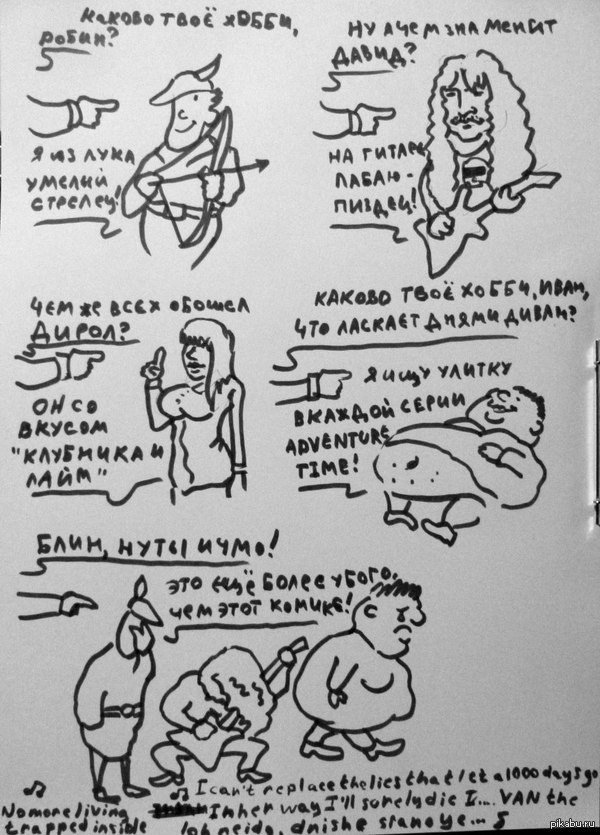 КАКОВО ТВОЁ ХОББИ,
РОБИН?
Я ИЗ ЛУКА
УМЕЛИЙ
СТРЕЛЕЦ!
НУ А ЧЕМ ЗНАМЕНИТ
ДАВИД?
НА ГИТАРЕ
ЛАБАЮ-
ПИЗДЕЦ!
ЧЕМ ЖЕ ВСЕХ ОБОШЕЛ
ДИРОЛ?
ОН СО
ВКУСОМ
"КЛУБНИКА И
ЛАЙМ"
КАКОВО ТВОЁ ХОББИ, ИВАН,
ЧТО ЛАСКАЕТ ДНЯМИ ДИВАН?
Я ИЩУ УЛИТКУ
В КАЖДОЙ СЕРИИ
ADVENTURE
TIME!
БЛИН, НУ ТЫ И ЧМО!
ЭТО ЕЩЁ БОЛЕЕ УБОГО,
ЧЕМ ЭТОТ КОМИКС!
I can't replace the lies that let a 1000 days go
No more living
trapped inside
In her way I'll surely die I.... VAN the
pikabu.ru